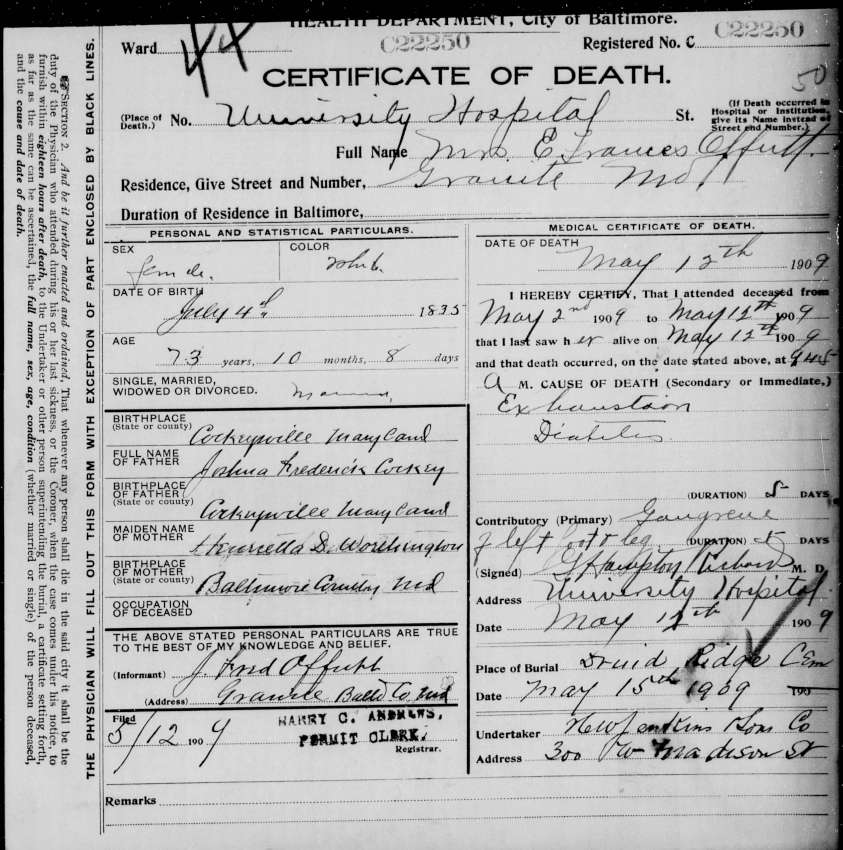 HEALTH DEPARTMENT, City of Baltimore.
Ward 44 C22250 Registered No. C C22250
CERTIFICATE OF DEATH.
50
(Place of Death.) No. University Hospital St. (If Death occurred in Hospital or Institution, give its Name instead of Street and Number.)
Full Name Mrs. E. Frances Offutt.
Residence, Give Street and Number, Granite Md.
Duration of Residence in Baltimore,
PERSONAL AND STATISTICAL PARTICULARS.
SEX Female.
COLOR White
DATE OF BIRTH July 4th 1835
AGE 73 years, 10 months, 8 days
SINGLE, MARRIED, WIDOWED OR DIVORCED.
BIRTHPLACE (State or county) Cockeysville Maryland
FULL NAME OF FATHER Joshua Frederick Cockey
BIRTHPLACE OF FATHER (State or county) Cockeysville Maryland
MAIDEN NAME OF MOTHER Henrietta D. Worthington
BIRTHPLACE OF MOTHER (State or county) Baltimore County Md
OCCUPATION OF DECEASED
THE ABOVE STATED PERSONAL PARTICULARS ARE TRUE
TO THE BEST OF MY KNOWLEDGE AND BELIEF.
(Informant) J. Fred Offutt
(Address) Granite Balto Co. Md
Filed 5/12 1909 HARRY C. ANDREWS,
PERMIT CLERK.
Registrar.
MEDICAL CERTIFICATE OF DEATH.
DATE OF DEATH
May 12th 1909
I HEREBY CERTIFY, That I attended deceased from
May 2nd 1909 to May 12th 1909
that I last saw her alive on May 12th 1909
and that death occurred, on the date stated above, at 9.45
A M. CAUSE OF DEATH (Secondary or Immediate,)
Exhaustion
Diabetes
(DURATION) 5 DAYS
Contributory (Primary) Gangrene
of left foot & leg (DURATION) DAYS
(Signed) G Hampton M. D.
Address University Hospital
Date May 12th 1909
Place of Burial Druid Ridge Cem
Date May 15th 1909 190
Undertaker H W Jenkins Sons Co
Address 300 W Madison St
Remarks
SECTION 2. And be it further enacted and ordained, That whenever any person shall die in the said city it shall be the
duty of the Physician who attended during his or her last sickness, or the Coroner, when the case comes under his notice, to
furnish within eighteen hours after death, to the Undertaker or other person superintending the burial, a certificate setting forth,
as far as the same can be ascertained, the full name, sex, age, condition (whether married or single) of the person deceased,
and the cause and date of death.
THE PHYSICIAN WILL FILL OUT THIS FORM WITH EXCEPTION OF PART ENCLOSED BY BLACK LINES.